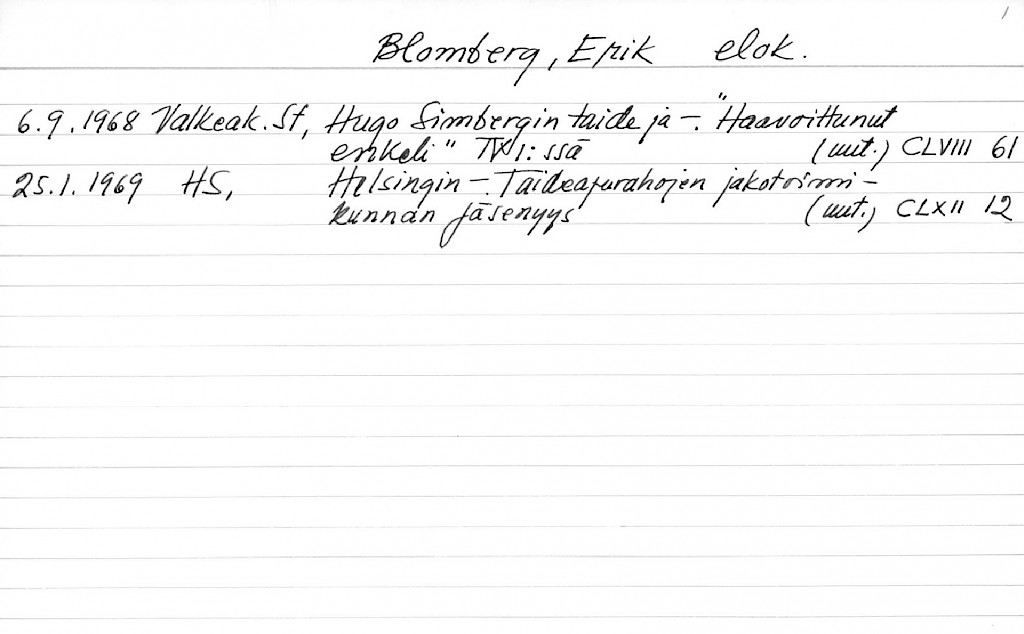 1
Blomberg, Erik elok.
6.9.1968 Valkeak. St, Hugo Simbergin taide ja -. "Haavoittunut
enkeli" TV1:ssä (uut.) CLVIII 61
25.1.1969 HS, Helsingin -. Taideapurahojen jakotoimi-
kunnan jäsenyys (uut.) CLXII 12